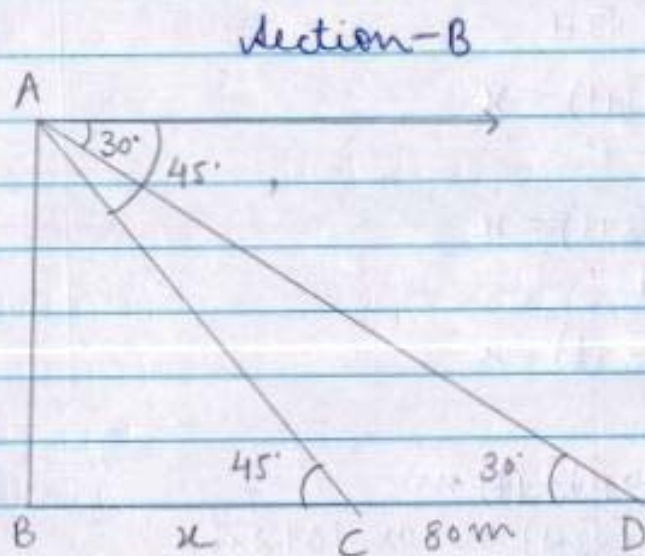 Section-B
A
30°
45°
45°
30°
B
x
C
80m
D